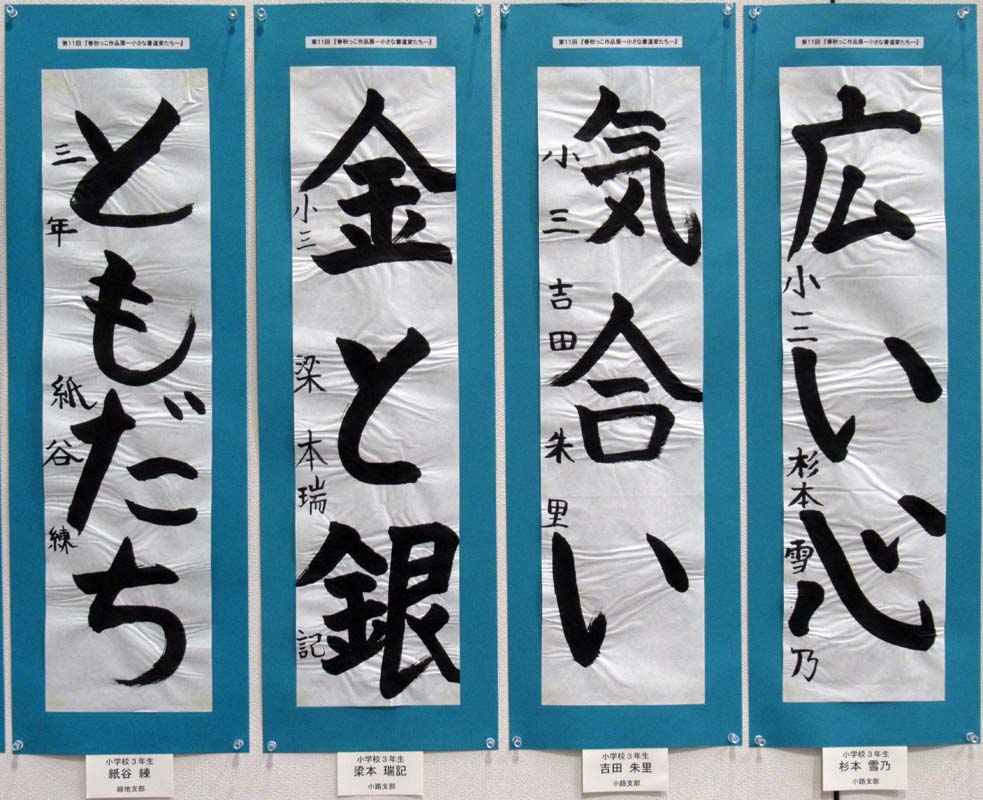 第11回『春秋っこ作品展―小さな書道家たち―』
ともだち
三年 紙谷 練
小学校3年生
紙谷 練
緑地支部
第11回『春秋っこ作品展―小さな書道家たち―』
金と銀
小三 梁本瑞記
小学校3年生
梁本 瑞記
小路支部
第11回『春秋っこ作品展―小さな書道家たち―』
気合い
小三 吉田朱里
小学校3年生
吉田 朱里
小路支部
第11回『春秋っこ作品展―小さな書道家たち―』
広い心
小三 杉本雪乃
小学校3年生
杉本 雪乃
小路支部